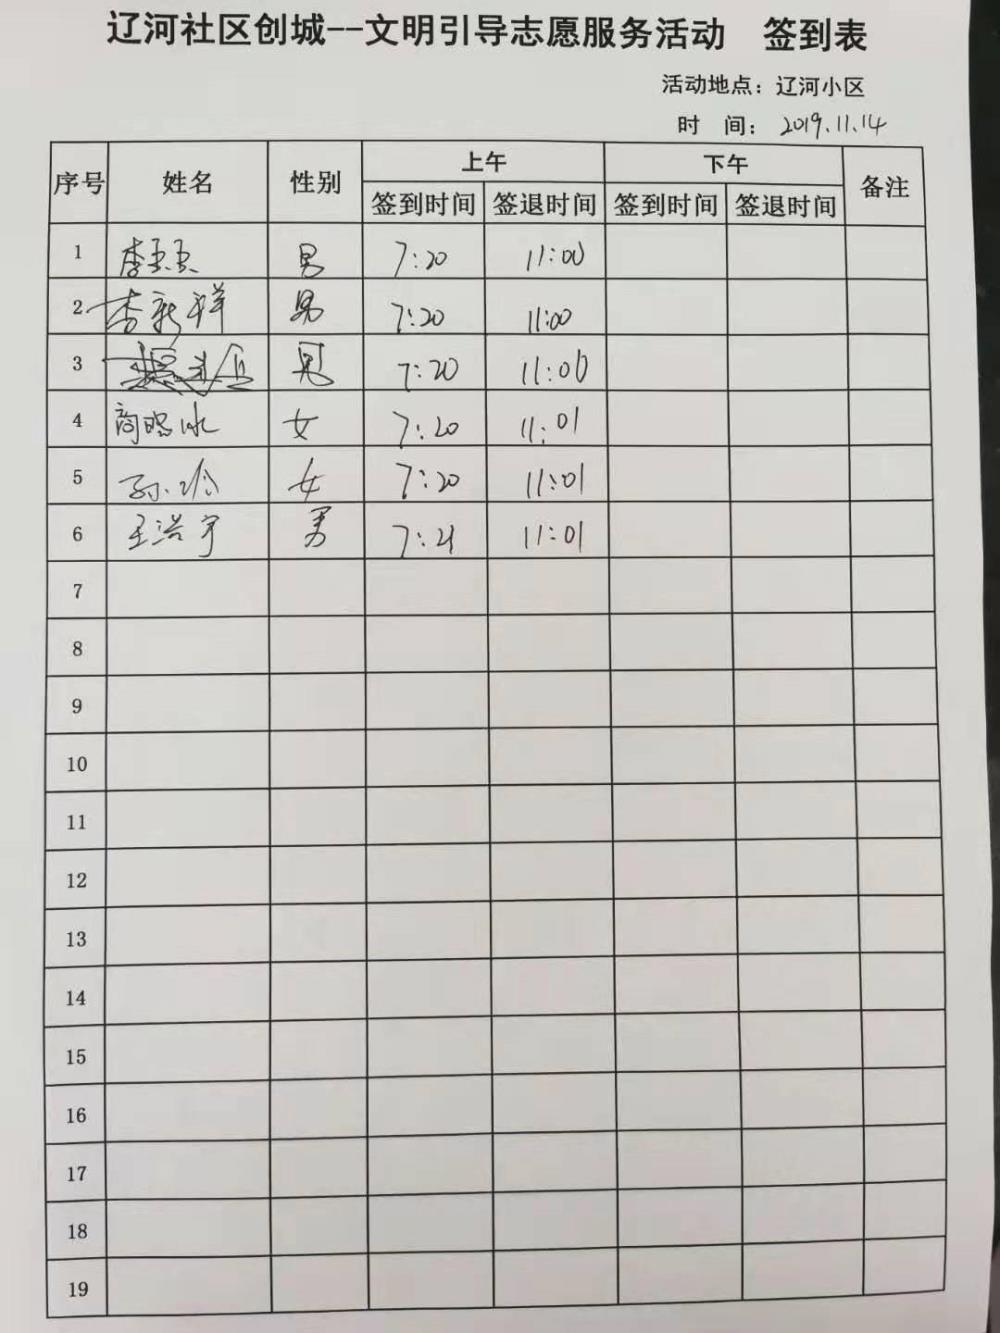 辽河社区创城--文明引导志愿服务活动 签到表
活动地点：辽河小区
时 间： 2019.11.14
序号 姓名 性别 上午 下午 备注
签到时间 签退时间 签到时间 签退时间
1 李 男 7:20 11:00
2 李新祥 男 7:20 11:00
3 男 7:20 11:00
4 商晓冰 女 7:20 11:01
5 孙玲 女 7:20 11:01
6 王浩宇 男 7:21 11:01
7
8
9
10
11
12
13
14
15
16
17
18
19